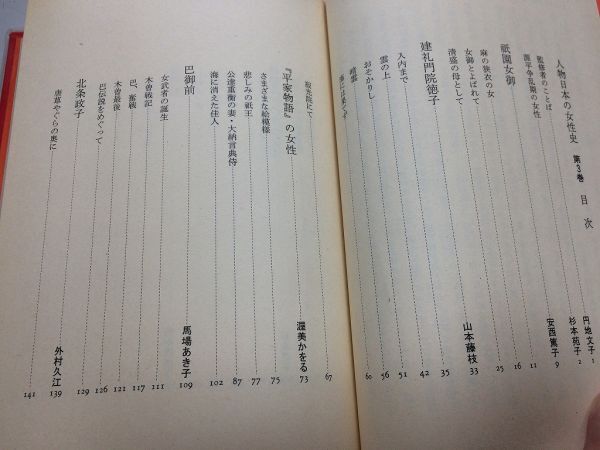 人物日本の女性史 第3巻 目次
監修者のことば 円地文子 1
源平争乱期の女性 杉本苑子 2
祇園女御 安西篤子 9
麻の狭衣の女 11
女御とよばれて 16
清盛の母として 25
建礼門院徳子 山本藤枝 33
入内まで 35
雲の上 42
おそかりし 51
暗雲 56
60
寂光院にて 67
『平家物語』の女性 渥美かをる 73
さまざまな絵模様 75
悲しみの祇王 77
公達重衡の妻・大納言典侍 87
海に消えた佳人 102
巴御前 馬場あき子 109
女武者の誕生 111
木曽戦記 117
巴、奮戦 121
木曽最後 126
巴伝説をめぐって 129
北条政子 外村久江 139
唐草やぐらの奥に 141